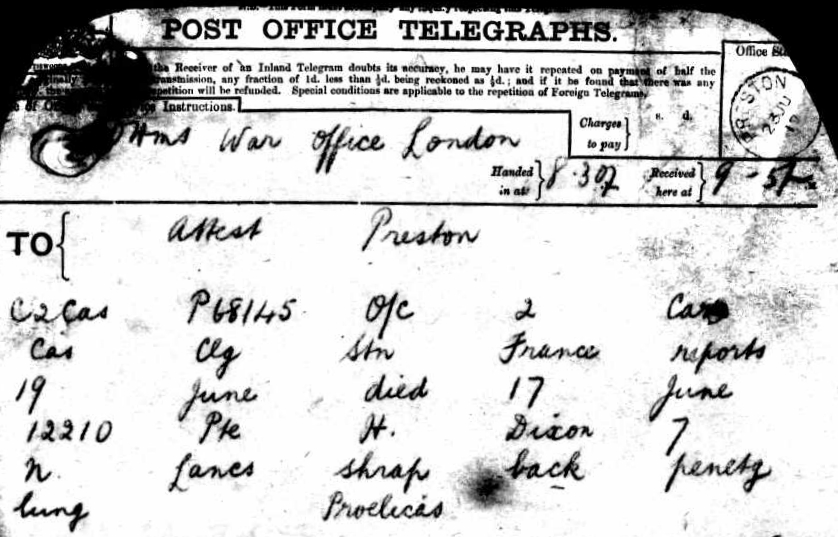 POST OFFICE TELEGRAPHS.
the Receiver of an Inland Telegram doubts its accuracy, he may have it repeated on payment of half the
transmission, any fraction of 1d. less than ½d. being reckoned as ½d.; and if it be found that there was any
will be refunded. Special conditions are applicable to the repetition of Foreign Telegrams.
Office
PRESTON
Instructions.
Hms War Office London
Charges to pay
s. d.
Handed in at 8.30
Received here at 9-5
TO Attest Preston
C2 Cas P68145 O/c 2 Cas
Cas Clg Stn France reports
19 June died 17 June
12210 Pte H. Dixon 7
N. Lancs shrap back penetg
lung Proelicas